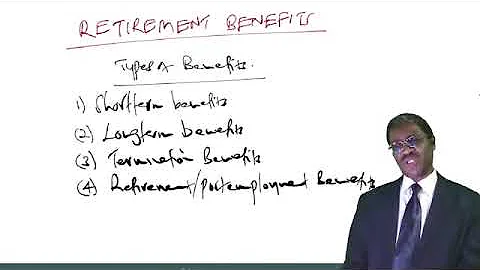 RETIREMENT BENEFITS
Types of Benefits.
1) Shortterm benefits
(2) Longterm benefits
(3) Termination Benefits
(4) Retirement/postemployment Benefits